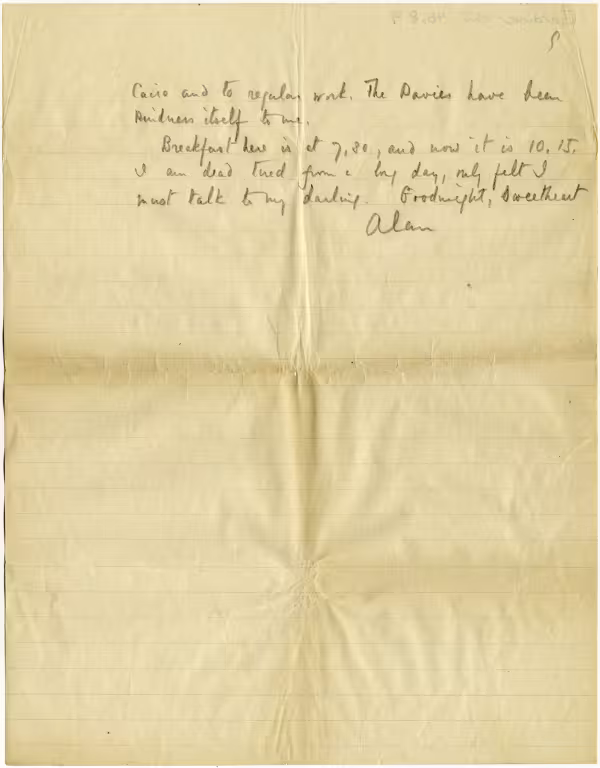 5
Cairo and to regular work. The Davies have been
kindness itself to me.
Breakfast here is at 7,30, and now it is 10.15.
I am dead tired from a long day, only felt I
must talk to my darling. Goodnight, Sweetheart
Alan